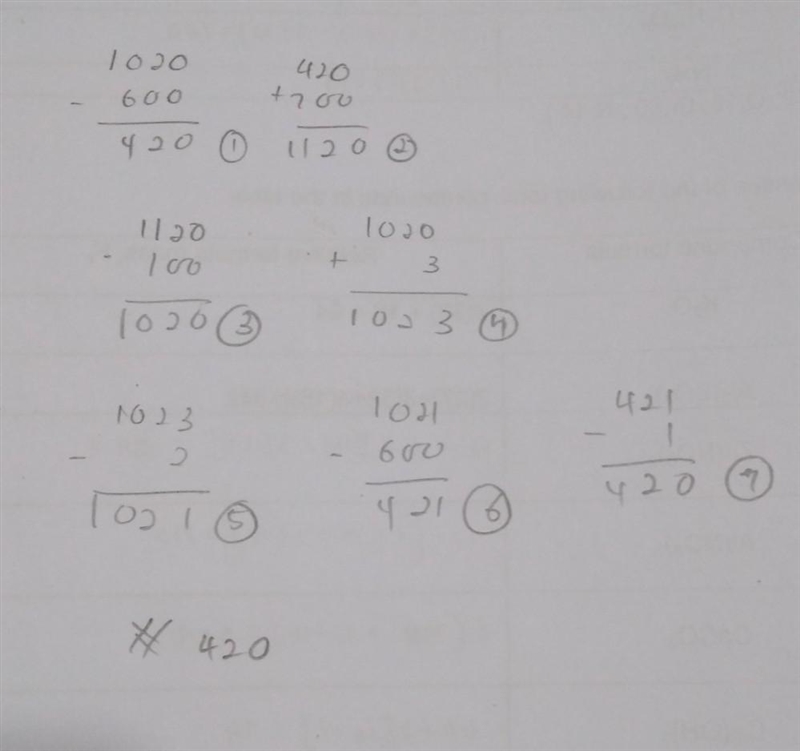 1020 420
- 600 +700
420 ① 1120 ②
1120 1020
- 100 + 3
1020 ③ 1023 ④
1023 1021 421
- 2 - 600 - 1
1021 ⑤ 421 ⑥ 420 ⑦
420